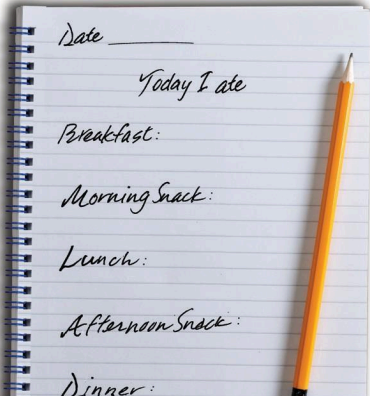 Date __________
Today I ate
Breakfast:
Morning Snack:
Lunch:
Afternoon Snack:
Dinner: